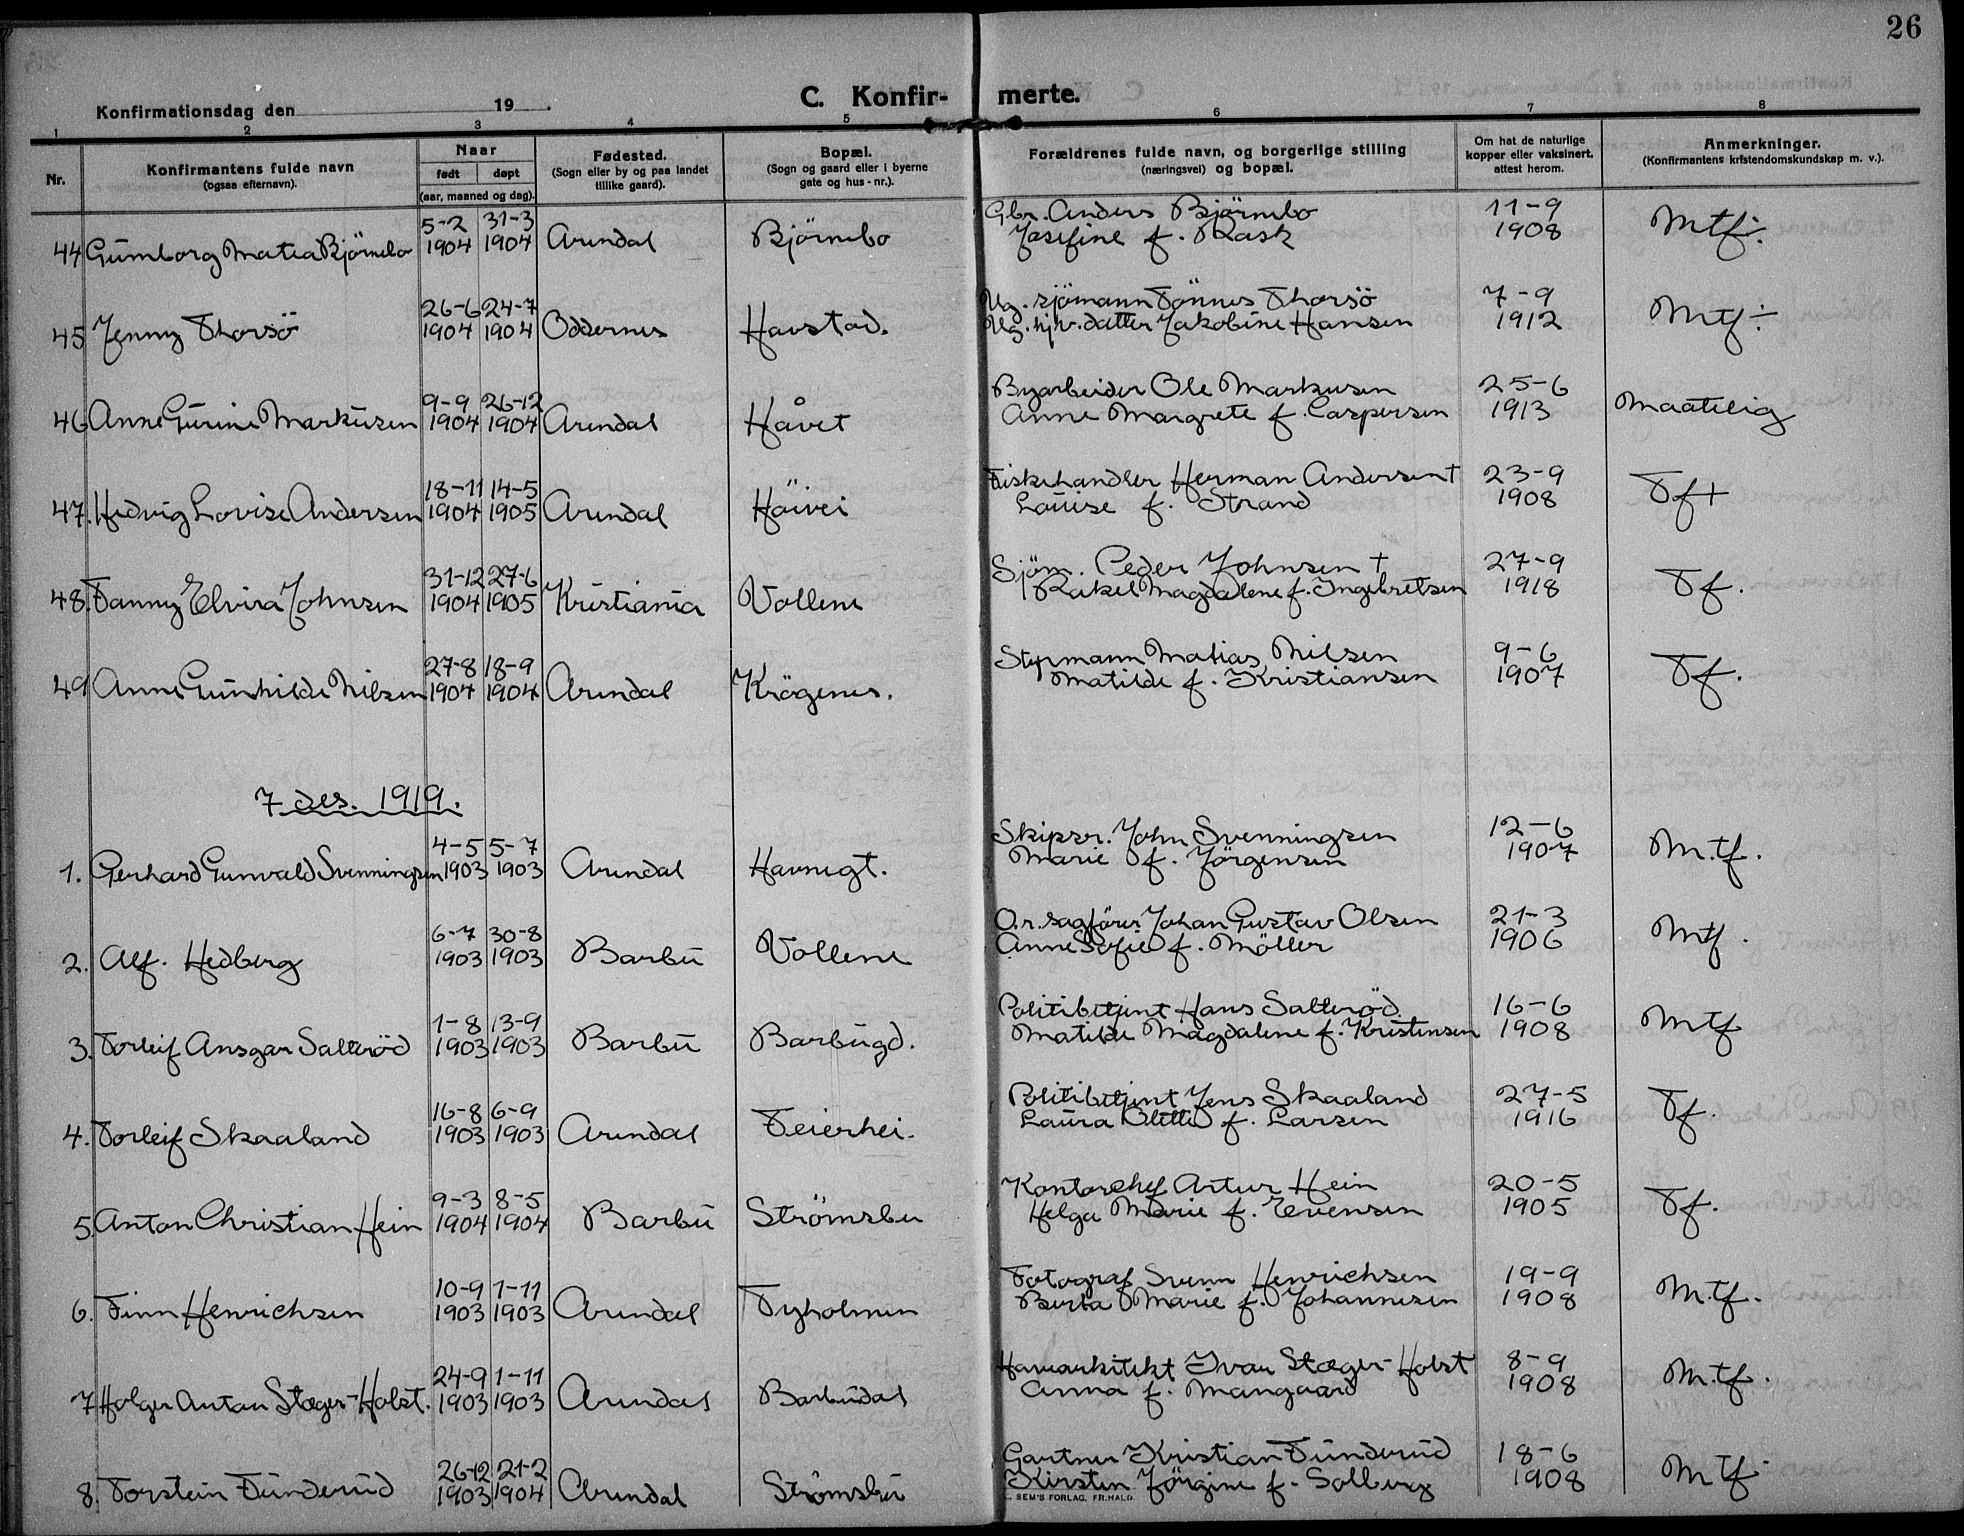 26
Konfirmationsdag den 19 .
C. Konfir- merte.
1 2 3 4 5 6 7 8
Nr.
Konfirmantens fulde navn
(ogsaa efternavn).
Naar
født døpt
(aar, maaned og dag).
Fødested.
(Sogn eller by og paa landet
tillike gaard).
Bopæl.
(Sogn og gaard eller i byerne
gate og hus-nr.).
Forældrenes fulde navn, og borgerlige stilling
(næringsvei) og bopæl.
Om hat de naturlige
kopper eller vaksinert,
attest herom.
Anmerkninger.
(Konfirmantens kristendomskundskap m. v.).
5-2 31-3 Gbr. Anders Björnebo 11-9
44 Gunborg Matea Björnebo 1904 1904 Arendal Björnebo Josefine f. Rask 1908 Mtf÷
26-6 24-7 Ug. sjömann Tönnes Thorsö 7-9
45 Jenny Thorsö 1904 1904 Oddernes Havstad. Ug. hjv. datter Jakobine Hansen 1912 Mtf÷
9-9 26-12 Byarbeider Ole Markusen 25-6
46 Anne Gurine Markusen 1904 1904 Arendal Håvet Anne Margrete f. Caspersen 1913 Maatelig
18-11 14-5 Fiskehandler Herman Andersen † 23-9
47. Hedvig Lovise Andersen 1904 1905 Arendal Höivei Louise f. Strand 1908 Tf+
31-12 27-6 Sjöm. Peder Johnsen † 27-9
48. Fanny Elvira Johnsen 1904 1905 Kristiania Vollene Rakel Magdalene f. Ingebretsen 1918 Tf.
27-8 18-9 Styrmann Matias Nilsen 9-6
49 Anne Gunhilde Nilsen 1904 1904 Arendal Krögenes. Matilde f. Kristiansen 1907 Tf.
7 des. 1919.
4-5 5-7 Skipsr. John Svenningsen 12-6
1. Gerhard Gunvald Svenningsen 1903 1903 Arendal Havnegt. Marie f. Jörgensen 1907 M.tf.
6-7 30-8 O.r.sagförer Johan Gustav Olsen 21-3
2. Alf. Hedberg 1903 1903 Barbu Vollene Anne Sofie f. Möller 1906 Mtf.
1-8 13-9 Politibetjent Hans Salteröd 16-6
3. Torleif Ansgar Salteröd 1903 1903 Barbu Barbugd. Matilde Magdalene f. Kristensen 1908 Mtf
16-8 6-9 Politibetjent Jens Skaaland 27-5
4. Torleif Skaaland 1903 1903 Arendal Feierhei. Laura Olette f. Larsen 1916 Tf.
9-3 8-5 Kontorchef Artur Hein 20-5
5. Anton Christian Hein 1904 1904 Barbu Strömsbu Helga Marie f. Evensen 1905 Tf.
10-9 1-11 Fotograf Svenn Henrichsen 19-9
6. Finn Henrichsen 1903 1903 Arendal Tyholmen Berta Marie f. Johannesen 1908 M.tf.
24-9 1-11 Havearkitekt Ivar Stæger-Holst 8-9
7 Holger Anton Stæger-Holst. 1903 1903 Arendal Barbudal Anna f. Mangaard 1908 M.tf.
26-12 21-2 Gartner Kristian Funderud 18-6
8. Torstein Funderud 1903 1904 Arendal Strömsbu Kirsten Jörgine f. Solberg 1908 Mtf
SEM'S FORLAG. FR.HALD.